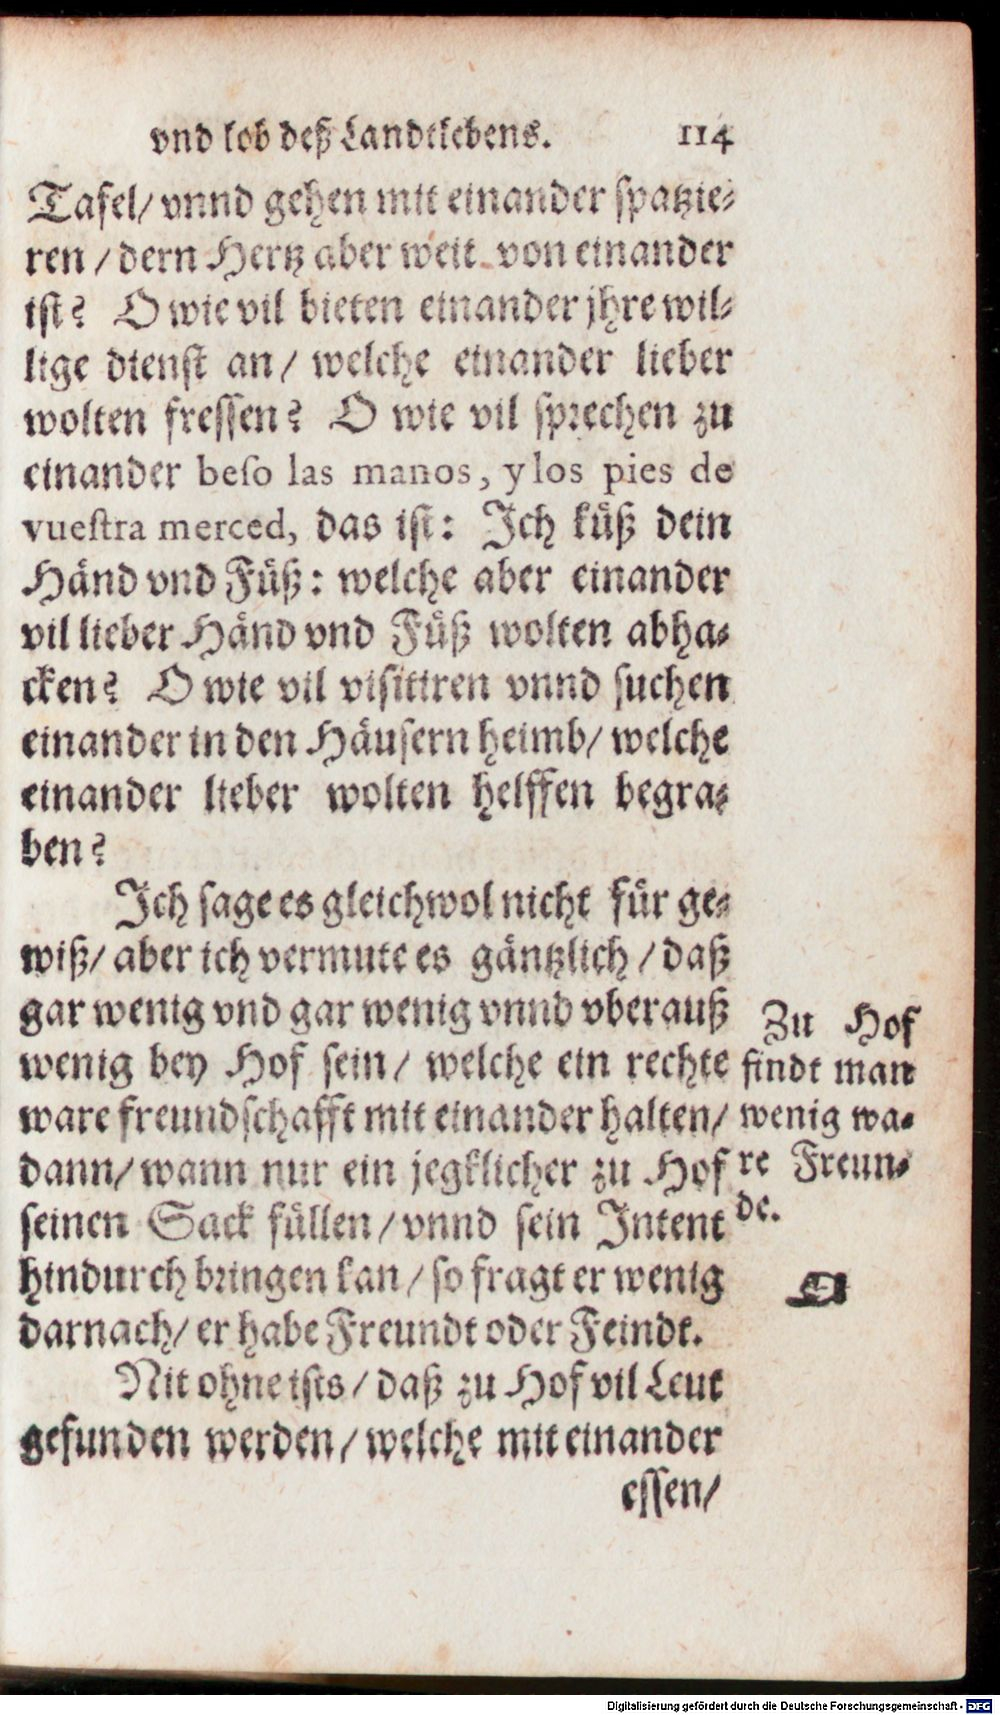 vnd lob deß Landtlebens. 114
Tafel/ vnnd gehen mit einander spatzie-
ren / dern Hertz aber weit von einander
ist? O wie vil bieten einander jhre wil-
lige dienst an / welche einander lieber
wolten fressen? O wie vil sprechen zu
einander beso las manos, y los pies de
vuestra merced, das ist: Ich küß dein
Händ vnd Füß: welche aber einander
vil lieber Händ vnd Füß wolten abha-
cken? O wie vil visitiren vnnd suchen
einander in den Häusern heimb/ welche
einander lieber wolten helffen begra-
ben?
Ich sage es gleichwol nicht für ge-
wiß/ aber ich vermute es gäntzlich / daß
gar wenig vnd gar wenig vnnd vberauß
wenig bey Hof sein / welche ein rechte
ware freundschafft mit einander halten/
dann/ wann nur ein jegklicher zu Hof
seinen Sack füllen / vnnd sein Intent
hindurch bringen kan / so fragt er wenig
darnach/ er habe Freundt oder Feindt.
Nit ohne ists / daß zu Hof vil Leut
gefunden werden / welche mit einander
essen/
Zu Hof
findt man
wenig wa-
re Freun-
de.
Digitalisierung gefördert durch die Deutsche Forschungsgemeinschaft - DFG